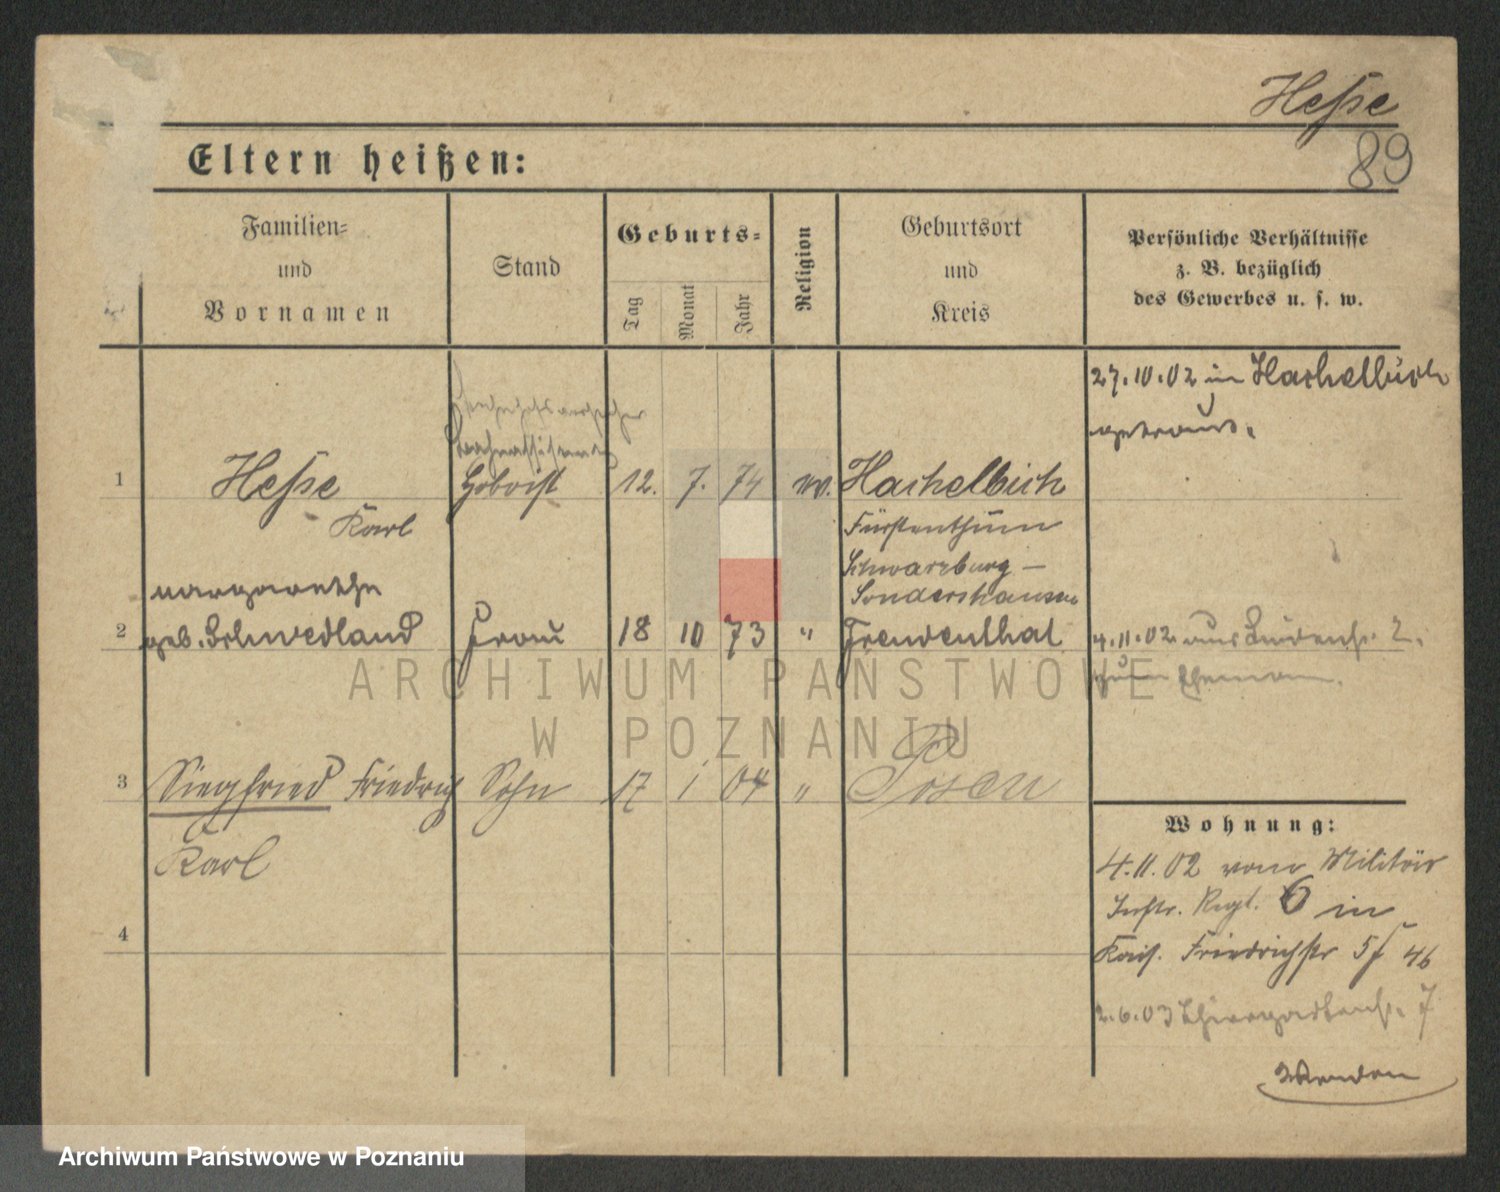 Hesse
89
Eltern heißen:
Familien-
und
Vornamen
Stand
Geburts-
Tag
Monat
Jahr
Religion
Geburtsort
und
Kreis
Persönliche Verhältnisse
z. B. bezüglich
des Gewerbes u. s. w.
27.10.02 in Hachelbich
getraut.
1 Hesse Hoboist 12. 7. 74 ev. Hachelbich
Karl
Fürstenthum
Schwarzburg-
Sondershausen
Margarethe
2 geb. Schwedland Frau 18 10 73 " Freudenthal
4.11.02 aus 2.
zum Ehemann.
3 Siegfried Friedrich Sohn 17 1 04 " Posen
Karl
4
Wohnung:
4.11.02 vom Militär
Inftr. Regt. 6 in
Kais. Friedrichstr 5 46
2.6.03 7
Wenden
ARCHIWUM PAŃSTWOWE
W POZNANIU
Archiwum Państwowe w Poznaniu